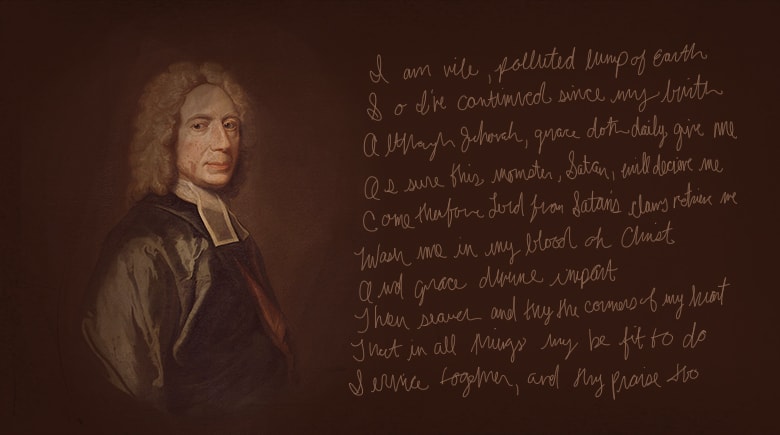 I am vile, polluted lump of earth
So I've continued since my birth
Although Jehovah, grace doth daily give me
As sure this monster, Satan, will deceive me
Come therefore Lord from Satan's claws me
Wash me in my blood oh Christ
And grace divine impart
Then search and try the corners of my heart
That in all things my be fit to do
Service together, and thy praise too